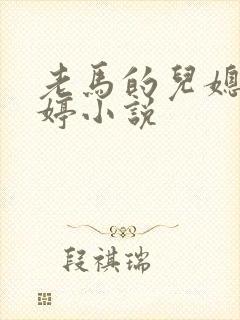 老馬的兒媳
婷小説
段祺瑞